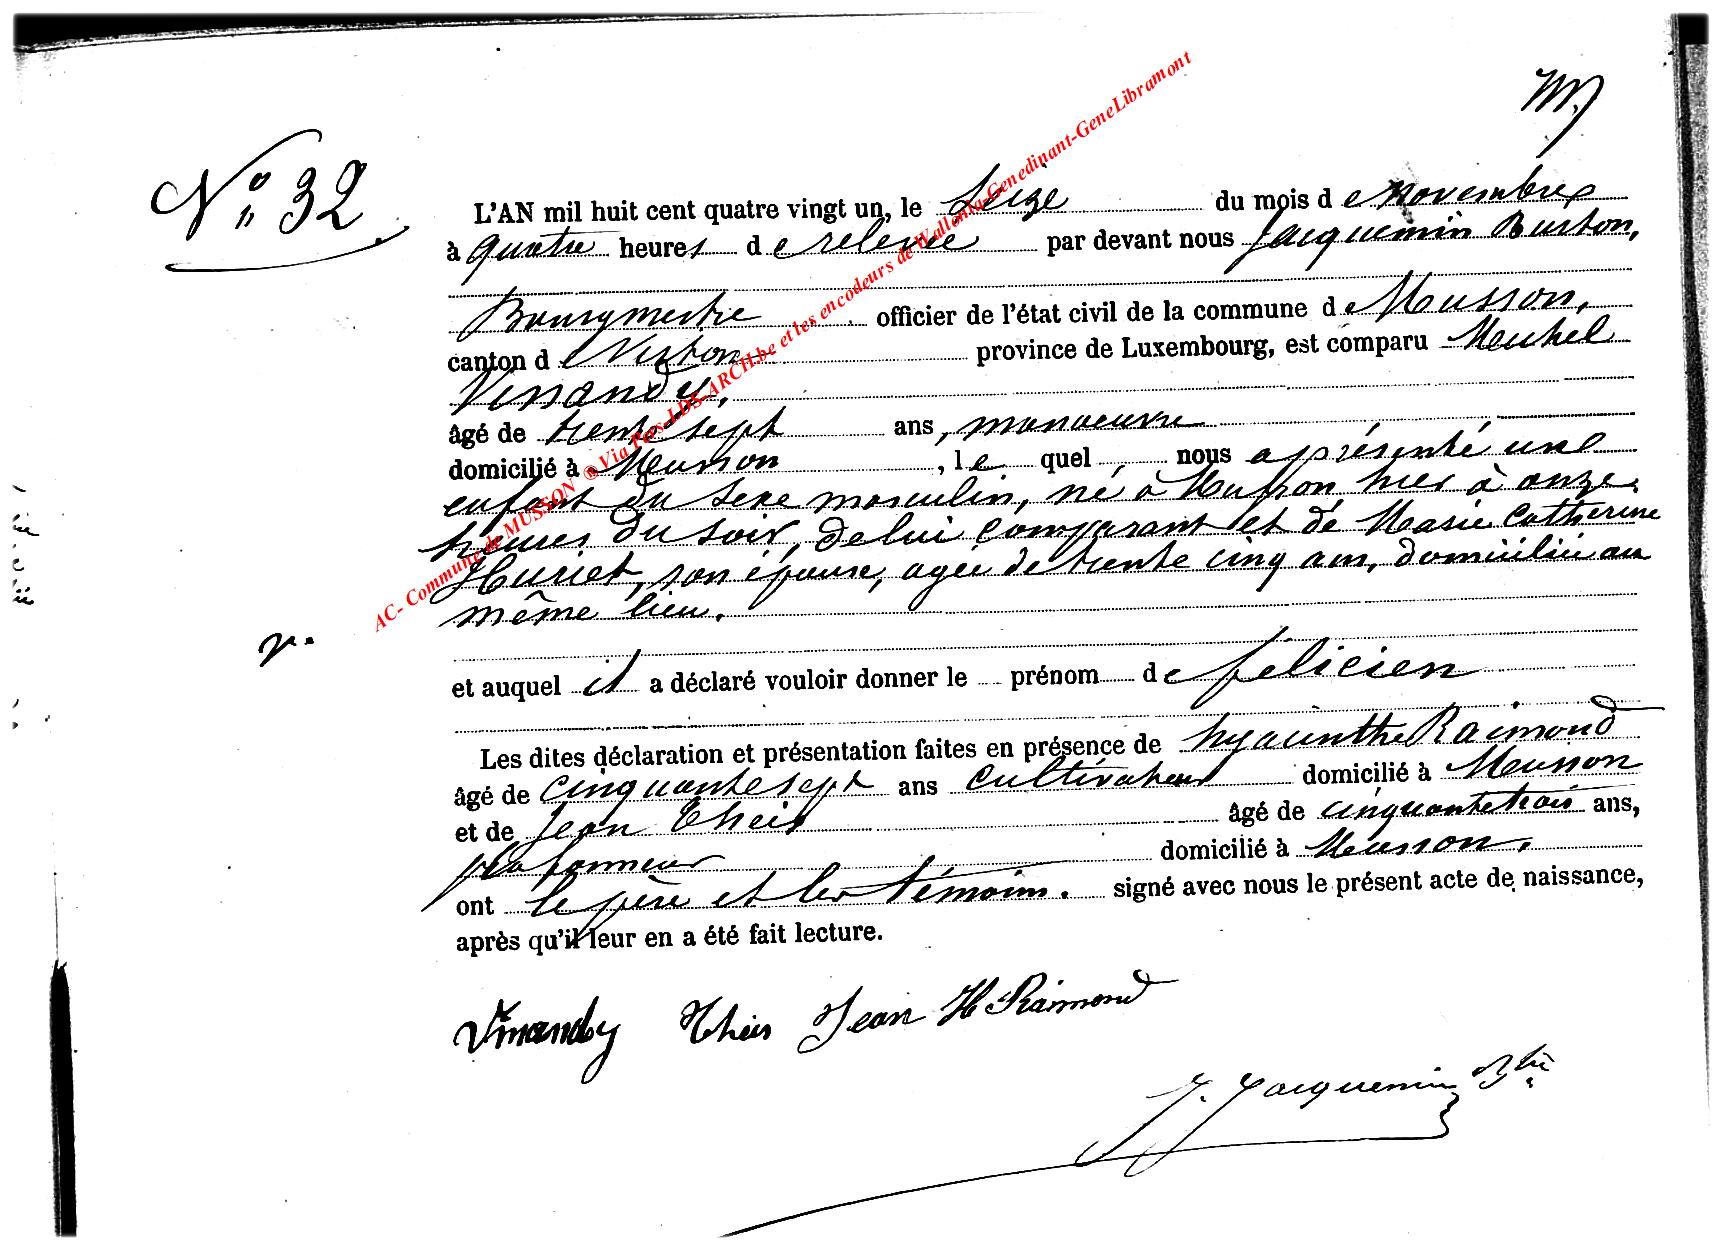 N° 32
L'AN mil huit cent quatre vingt un, le Seize du mois de novembre
à quatre heures de relevée par devant nous Jacquemin Burton,
Bourgmestre officier de l'état civil de la commune de Musson,
canton de Virton province de Luxembourg, est comparu Michel
Vinandy,
âgé de trente sept ans, manoeuvre
domicilié à Musson, le quel nous a présenté une
enfant du sexe masculin, né à Musson, hier à onze
heures du soir, de lui comparant et de Marie Catherine
Huriet, son épouse, agée de trente cinq ans, domiciliée au
même lieu.
et auquel il a déclaré vouloir donner le prénom de félicien
Les dites déclaration et présentation faites en présence de hyacinthe Raimond
âgé de cinquante sept ans cultivateur domicilié à Musson
et de Jean Theis âgé de cinquante trois ans,
plafonneur domicilié à Musson.
ont le père et les témoins. signé avec nous le présent acte de naissance,
après qu'il leur en a été fait lecture.
Vinandy Theis Jean H Raimond
J. Jacquemin Btre
AC- Commune de MUSSON ® Via Pres-LDS-ARCH.be et les encodeurs de Wallonia-Genedinant-GeneLibramont